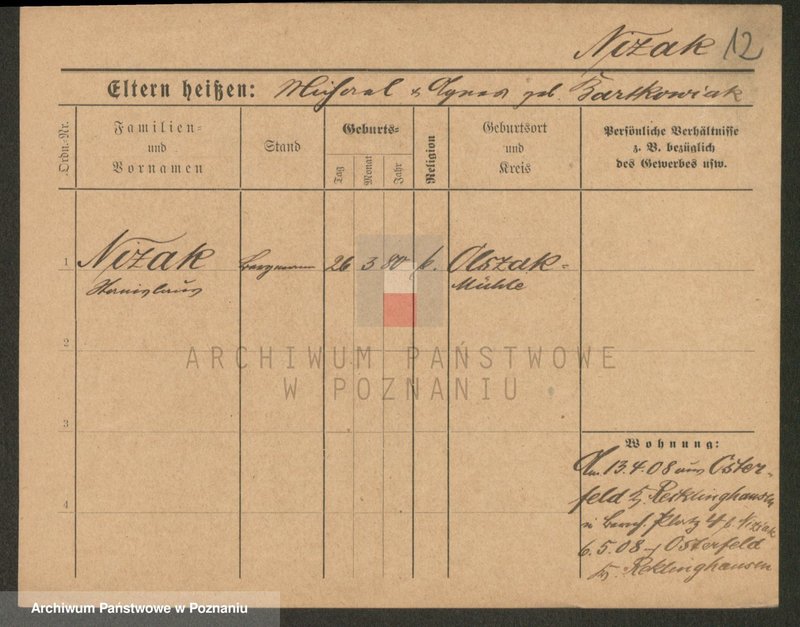 Nizak 12
Eltern heißen: Michael & Agnes geb. Bartkowiak
Ordn.-Nr.
Familien=
und
Vornamen
Stand
Geburts=
Tag
Monat
Jahr
Religion
Geburtsort
und
Kreis
Persönliche Verhältnisse
z. B. bezüglich
des Gewerbes usw.
1 Nizak Bergmann 26 3 80 k. Olszak=
Stanislaus Mühle
2
ARCHIWUM PAŃSTWOWE
W POZNANIU
3
4
Wohnung:
Am 13.4.08 aus Oster-
feld Kr. Recklinghausen
Platz 4 b. Niziak
6.5.08 Osterfeld
Kr. Recklinghausen
Archiwum Państwowe w Poznaniu